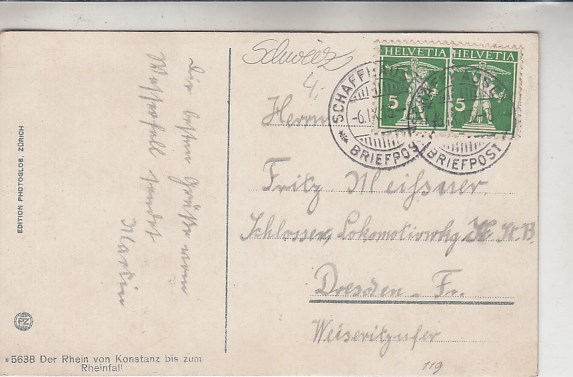 Die besten Grüße vom
Wasserfall sendet
Martin
EDITION PHOTOGLOB, ZÜRICH
PZ
*5638 Der Rhein von Konstanz bis zum
Rheinfall
Schweiz
4.
HELVETIA
HELVETIA
5
5
SCHAFFH
-6.IX
BRIEFPOST
BRIEFPOST
Herrn
Fritz Meißner
Schlosser, Lokomotivwkg
Dresden - Fr.
Weiseritzufer
119